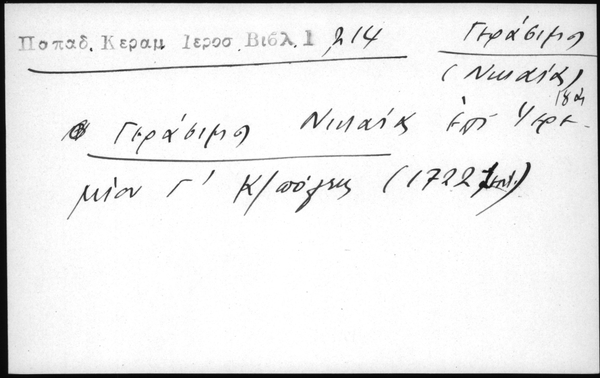 Παπαδ. Κεραμ Ιεροσ. Βιβλ. 1, 214
Γεράσιμος
(Νικαίας)
Γεράσιμος Νικαίας ἐπὶ Ἱερε-
μίου Γ' Κ/πόλεως (1722)